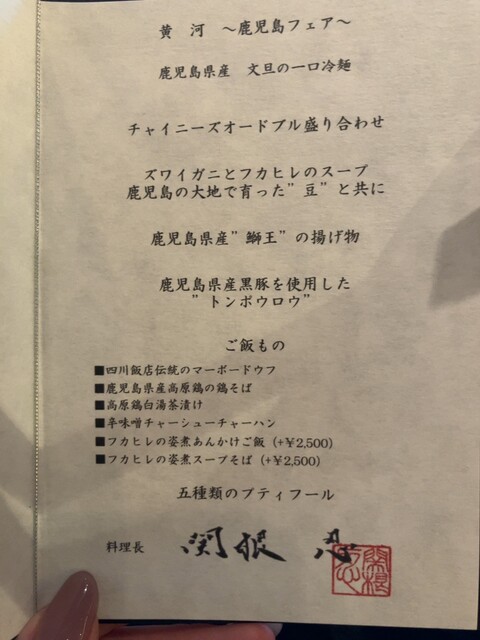 黄　河　～鹿児島フェア～
鹿児島県産　文旦の一口冷麺
チャイニーズオードブル盛り合わせ
ズワイガニとフカヒレのスープ
鹿児島の大地で育った”豆”と共に
鹿児島県産”鰤王”の揚げ物
鹿児島県産黒豚を使用した
”トンポウロウ”
ご飯もの
■四川飯店伝統のマーボードウフ
■鹿児島県産高原鶏の鶏そば
■高原鶏白湯茶漬け
■辛味噌チャーシューチャーハン
■フカヒレの姿煮あんかけご飯（+￥2,500）
■フカヒレの姿煮スープそば（+￥2,500）
五種類のプティフール
料理長　関根　忍